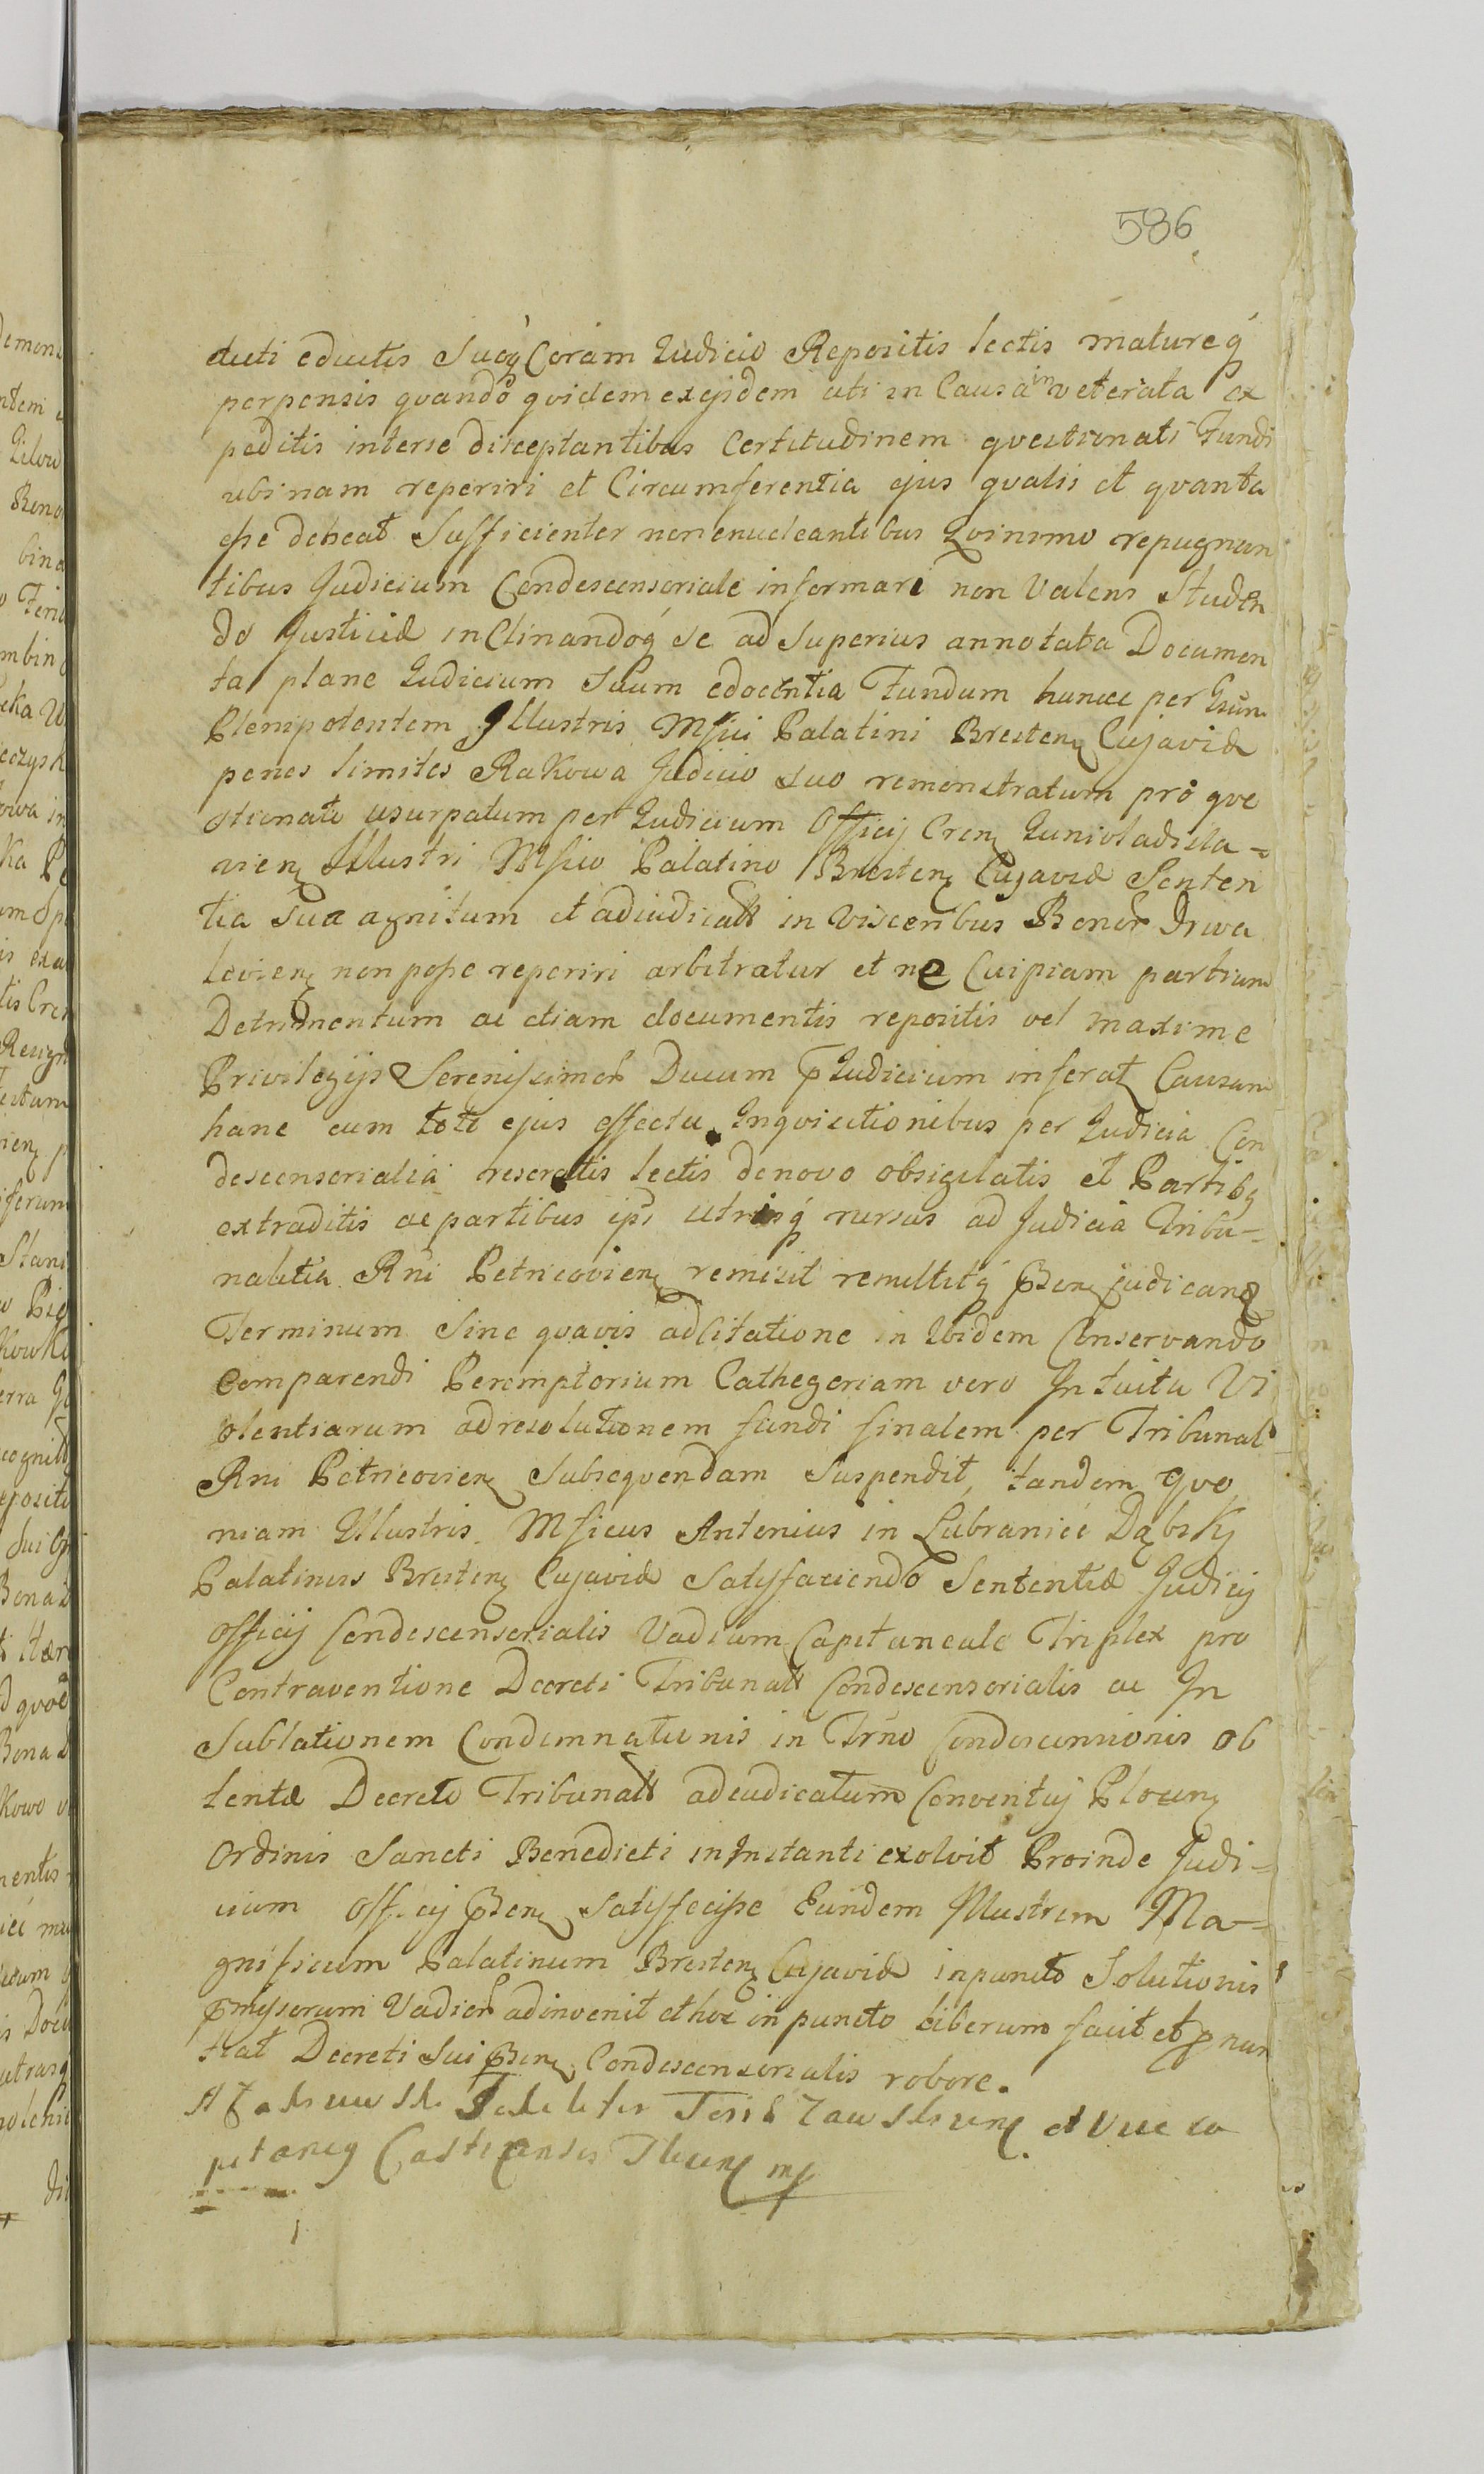 586
ducti eductis Suoq́ Coram Iudicio Repositis lectis matureq́
perpensis qvando qvidem exijsdem uti in Causa inveterata ex
peditis interse disceptantibus Certitudinem qvestionati Fundi
ubinam reperiri et Circumferentia ejus qvalis et qvanta
esse debeat Sufficienter non enucleantibus Qvinimo repugnan
tibus Judicium Condescensoriale informari non Valens Studen
do Justitiæ inClinandoq́ se ad Superius annotata Documen
ta plane Iudicium Suum edocentia Fundum hunce per Gsum
Plenipotentem Illustris Mfici Palatini Bresten Cujaviæ
penes limites Rakowa Judicio suo remonstratum pro qve
stionato usurpatum per Iudicium Officij Cren Iunivladisla=
vien Illustri Mfico Palatino Bresten Cujaviæ Senten
tia Sua agnitum et adiudicatt in Visceribus Bonor Drwa
levien non posse reperiri arbitratur et ne Cuipiam partium
Detrimentum ac etiam documentis repositis vel maxime
Privilegijs Serenissimor Ducum p̄Iudicium inferat Causam
hanc cum toto ejus effectu Inqvisitionibus per Iudicia Con
descensorialia reseratis lectis denovo obsigilatis et Partibq
extraditis ac partibus ipsis utrisq́ rursus ad Judicia Tribu=
nalitia Rni Petricovien remisit remittitq́ p̄sen judicans
Terminum Sine qvavis adCitatione in Ibidem Conservando
Comparendi Peremptorium Cathegoriam vero Intuitu Vi
olentiarum adresolutionem fundi finalem per Tribunal
Rni Petricovien Subseqvendam Suspendit, tandem qvo
niam Illustris Mficus Antonius in Lubranici Dąbskj
Palatinus Bresten Cujaviæ Satysfaciendo Sententiæ Judicij
officij Condescensorialis Vadium Capitaneale Triplex pro
Contraventione Decreti Tribunatt Condescensorialis ac In
Sublationem Condemnationis in Trno Condescensionis ob
tentæ Decreto Tribunatt adiudicatum Conventuj Plocen
Ordinis Sancti Benedicti inInstanti exolvit Proinde Judi=
cium Officij p̄sen Satysfecisse Eundem Illustrem Ma=
gnificum Palatinum Bresten Cujaviæ inpuncto Solutionis
p̄myssorum Vadior adinvenit et hoc in puncto liberum facit et p̄nun
tiat Decreti Sui p̄sen Condescensorialis robore.
et Vice ca
pitaneq Castrensis